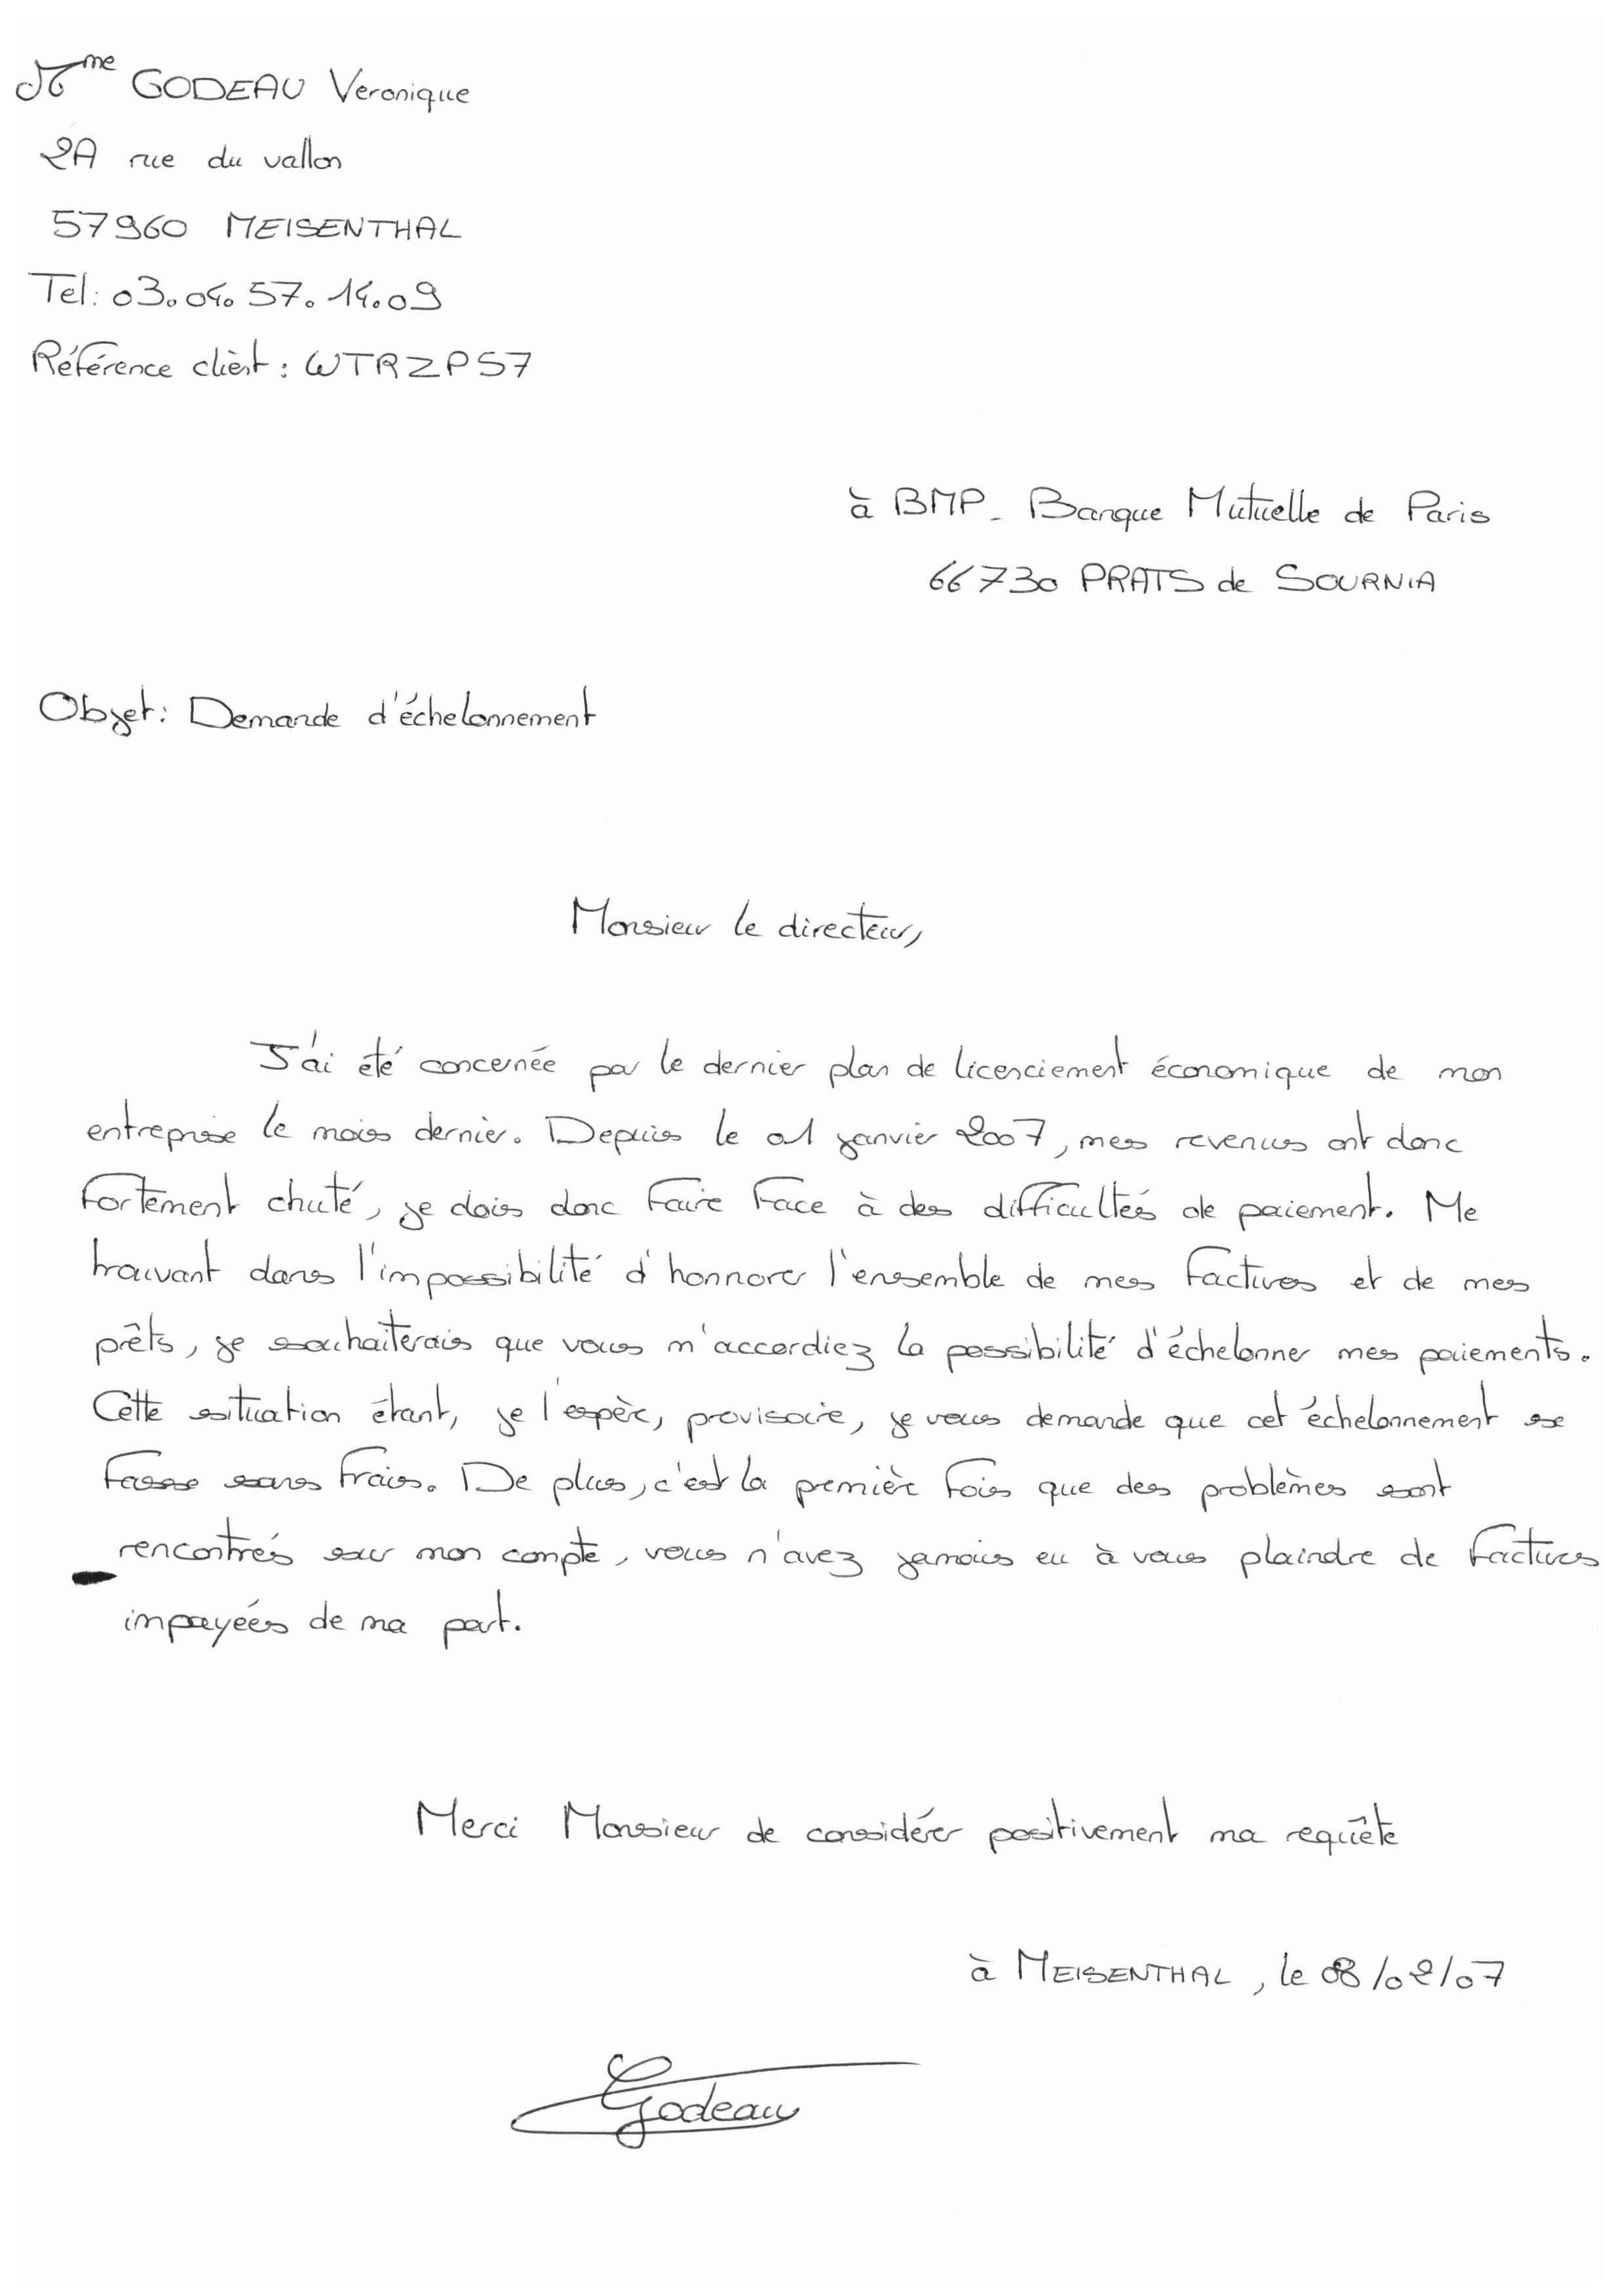 Mme GODEAU Veronique
2A rue du vallon
57960 MEISENTHAL
Tel: 03.04.57.14.09
Référence client : WTRZP57
à BMP_ Banque Mutuelle de Paris
66730 PRATS de SOURNIA
Objet: Demande d'échelonnement
Monsieur le directeur,
J'ai été concernée par le dernier plan de licenciement économique de mon
entreprise le mois dernier. Depuis le 01 janvier 2007, mes revenus ont donc
fortement chuté, je dois donc faire face à des difficultés de paiement. Me
trouvant dans l'impossibilité d'honnorer l'ensemble de mes factures et de mes
prêts, je souhaiterais que vous m'accordiez la possibilité d'échelonner mes paiements.
Cette situation étant, je l'espère, provisoire, je vous demande que cet échelonnement se
fasse sans frais. De plus, c'est la première fois que des problèmes sont
rencontrés sur mon compte, vous n'avez jamais eu à vous plaindre de factures
impayées de ma part.
Merci Monsieur de considérer positivement ma requête
à MEISENTHAL, le 08/02/07
Godeau